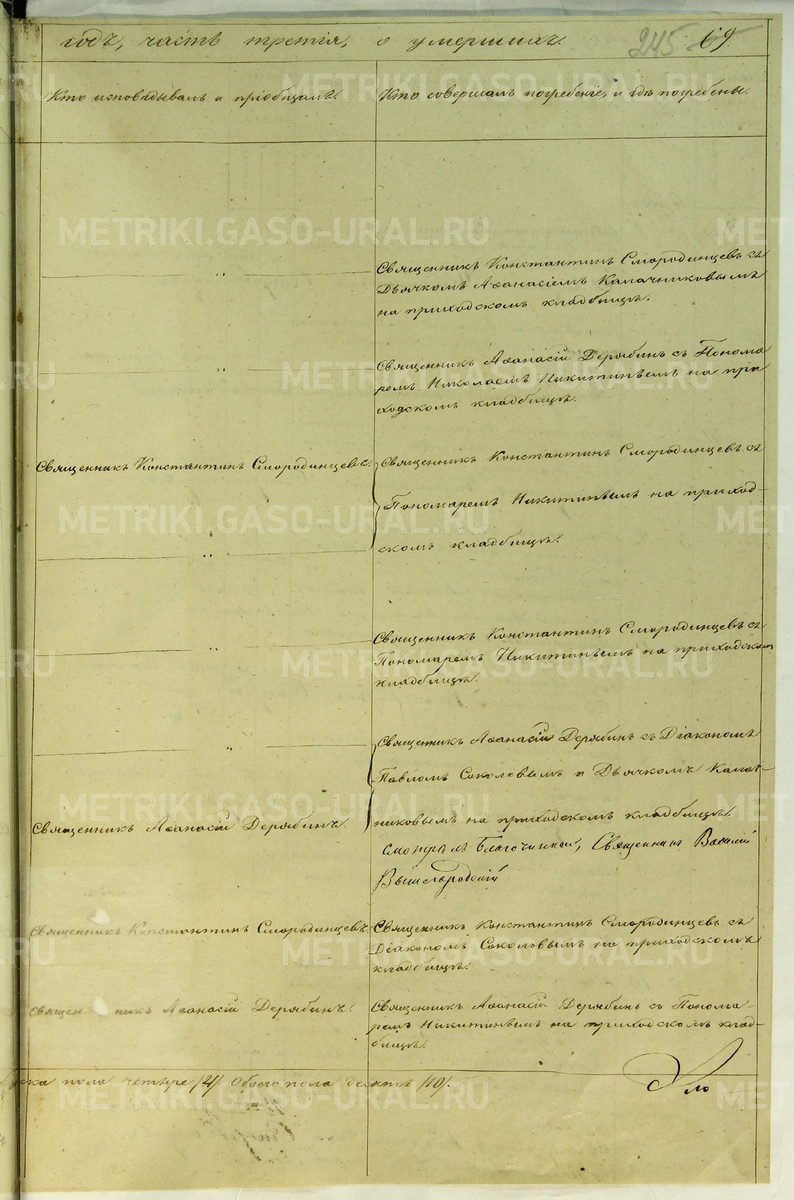 годъ, часть третія, о умершихъ. 245 69
Кто исповѣдывалъ и пріобщалъ.
Кто совершалъ погребеніе, и гдѣ погребены.
METRIKI.GASO-URAL.RU
Священникъ Константинъ Смородинцевъ съ
Дьячкомъ Аѳанасіемъ Калачниковымъ
на приходскомъ кладбищѣ.
Священникъ Аѳанасій Дерябинъ съ Понома
ремъ Николаемъ Никитинымъ на при
ходскомъ кладбищѣ.
Священникъ Константинъ Смородинцевъ.
Священникъ Константинъ Смородинцевъ съ
Пономаремъ Никитинымъ на приход-
скомъ кладбищѣ.
Священникъ Константинъ Смородинцевъ съ
Пономаремъ Никитинымъ на приходскомъ
кладбищѣ.
Священникъ Аѳанасій Дерябинъ съ Діакономъ
Павломъ Соколовымъ и Дьячкомъ Калач-
никовымъ на приходскомъ кладбищѣ.
Священникъ Аѳанасій Дерябинъ.
Смотрѣлъ Благочинный, Священникъ Василій
Вышегородскій
Священникъ Константинъ Смородинцевъ.
Священникъ Константинъ Смородинцевъ съ
Діакономъ Соколовымъ на приходскомъ
кладбищѣ.
Священникъ Аѳанасій Дерябинъ.
Священникъ Аѳанасій Дерябинъ съ Понома
ремъ Никитинымъ на приходскомъ клад-
бищѣ.
ска пола четыре /4/ Обоего пола десять /10/.